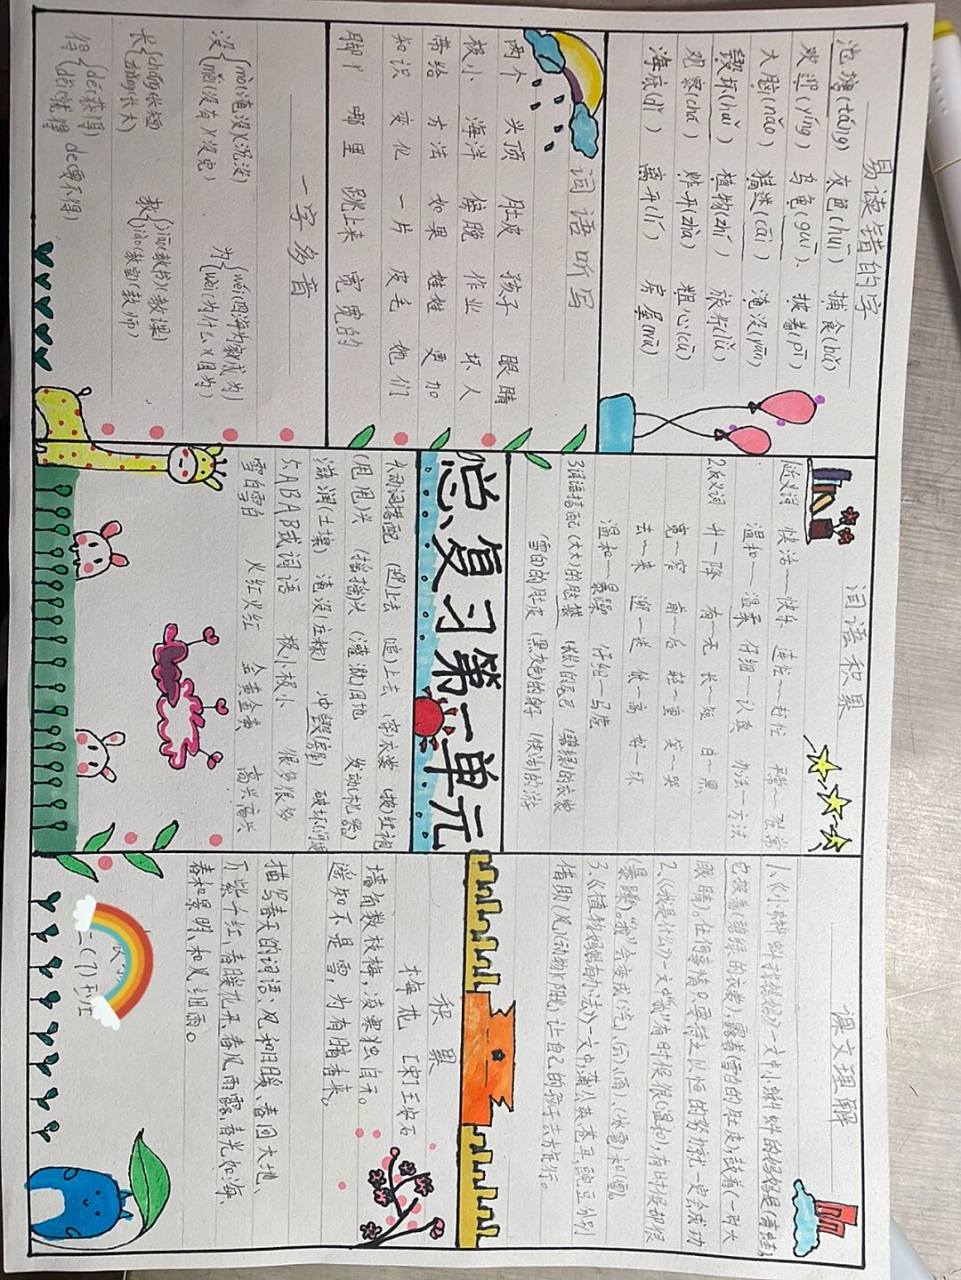 总复习第一单元
易读错的字
池塘(táng) 灰色(huī) 捕食(bǔ)
欢迎(yíng) 乌龟(guī)、披着(pī)
大脑(nǎo) 猜迷(cāi) 淹没(yān)
毁坏(huǐ) 植物(zhí) 旅行(lǚ)
观察(chá) 炸开(zhà) 粗心(cū)
海底(dǐ) 离开(lí) 房屋(wū)
词语听写
两个 头顶 肚皮 孩子 眼睛
极小 海洋 傍晚 作业 坏人
带给 方法 如果 娃娃 更加
知识 变化 一片 皮毛 他们
脚 哪里 跳上来 宽宽的
一字多音
没{mò(淹没)(沉没) 为{wéi(四海为家)(成为)
méi(没有)(没完) wèi(为什么)(因为)
长{cháng(长短) 教{jiāo(教书)(教课)
zhǎng(长大) jiào(教室)(教师)
得{dé(获得)
děi(就得) de(要不得)
词语积累
近义词 快活—快乐 连忙—赶忙 平常—往常
温和—温柔 仔细—认真 办法—方法
2.反义词 升—降 有—无 长—短 白—黑
宽—窄 前—后 轻—重 笑—哭
去—来 迎—送 低—高 好—坏
温和—暴躁 仔细—马虎
3.词语搭配 (大大)的脑袋 (长长)的尾巴 (碧绿)的衣裳
(雪白)的肚皮 (黑灰色)的 (快活)的游
4.动词搭配 (迎)上去 (追)上去 (穿)衣裳 (披)红袍
(甩甩)头 (摇摇) (灌溉)田地 发动(机器)
滋润(土壤) 淹没(庄稼) 冲毁(房屋) 破坏
5.ABAB式词语 极小极小 很多很多
雪白雪白 火红火红 金黄金黄 高兴高兴
课文理解
1.《小蝌蚪找妈妈》一文中小蝌蚪的妈妈是(青蛙),
它披着(碧绿的衣裳),露着(雪白的肚皮),鼓着(一对大
眼睛)。任何事情只要持之以恒的努力就一定会成功
2.《我是什么》一文,“我”有时候很(温和),有时候却很
(暴躁)。“我”会变成(汽)、(云)、(雨)、(冰雹)和(雪)。
3.《植物妈妈有办法》一文中,蒲公英、苍耳、豌豆分别
借助(风)(动物)(阳光),让自己的孩子去旅行。
积累
梅花 [宋]王安石
墙角数枝梅,凌寒独自开。
遥知不是雪,为有暗香来。
描写春天的词语:风和日暖、春回大地、
万紫千红、春暖花开、春风雨露、春光如海
春和景明、和风细雨。
二(7)班